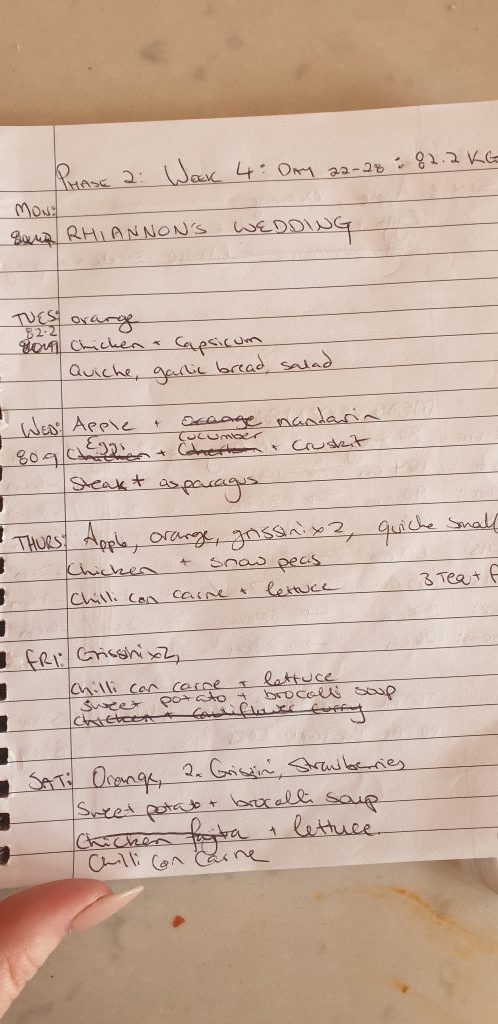 PHASE 2: WEEK 4: DAY 22-28: 82.2 KG
MON:
RHIANNON'S WEDDING
TUES: orange
82.2
chicken + capsicum
Quiche, garlic bread, salad
WED: Apple + orange mandarin
Egg: cucumber
80.9 chicken + + cruskit
Steak + asparagus
THURS: Apple, orange, grissini x2, quiche small
Chicken + snow peas
Chilli con carne + lettuce 3 Tea +
FRI: Grissini x2,
Chilli con carne + lettuce
Sweet potato + brocolli soup
chicken + cauliflower curry
SAT: Orange, 2x Grissini, Strawberries
Sweet potato + brocolli soup
Chicken fajita + lettuce.
Chilli con carne